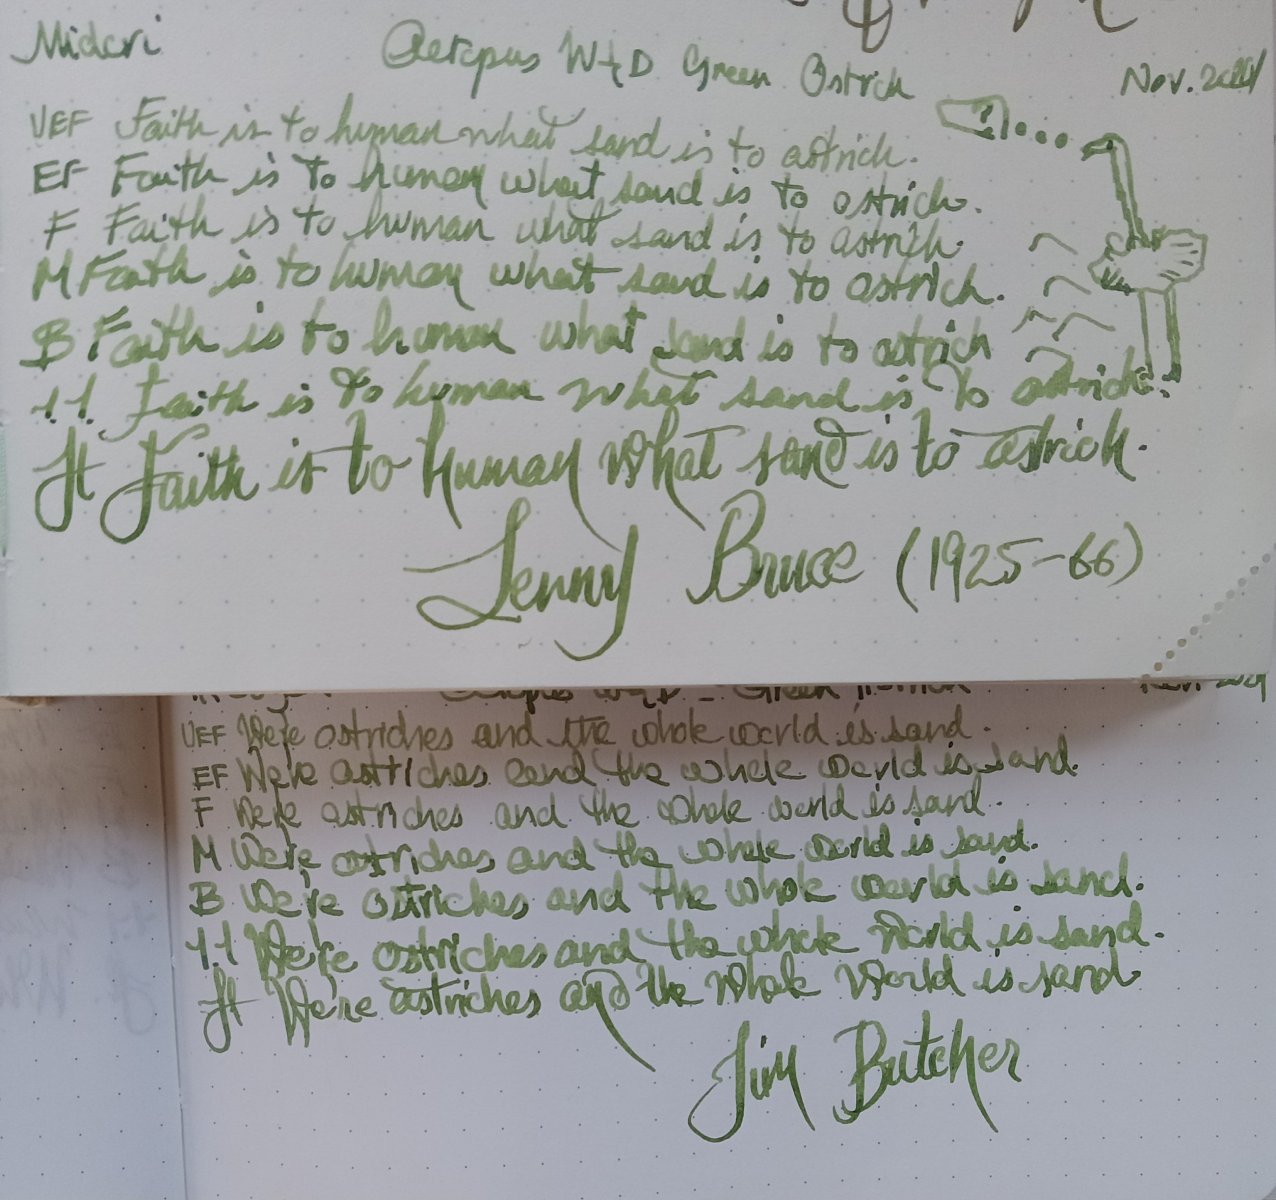 Midori
Octopus W&D Green Ostrich
Nov. 2024
UEF Faith is to human what sand is to ostrich.
EF Faith is to human what sand is to ostrich.
F Faith is to human what sand is to ostrich.
M Faith is to human what sand is to ostrich.
B Faith is to human what sand is to ostrich
1.1 Faith is to human what sand is to ostrich.
Jt Faith is to human what sand is to ostrich.
Lenny Bruce (1925-66)
UEF We're ostriches and the whole world is sand.
EF We're ostriches and the whole world is sand.
F We're ostriches and the whole world is sand.
M We're ostriches and the whole world is sand.
B We're ostriches and the whole world is sand.
1.1 We're ostriches and the whole world is sand.
Jt We're ostriches and the whole world is sand
Jim Butcher